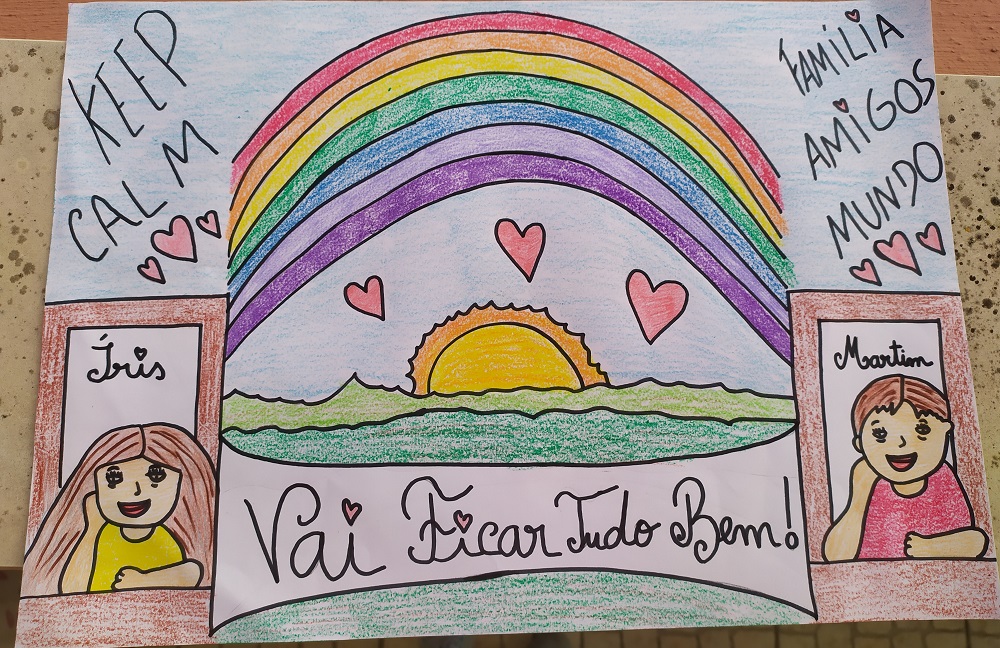 KEEP
CALM
FAMÍLIA
AMIGOS
MUNDO
Íris
Martim
Vai Ficar Tudo Bem!